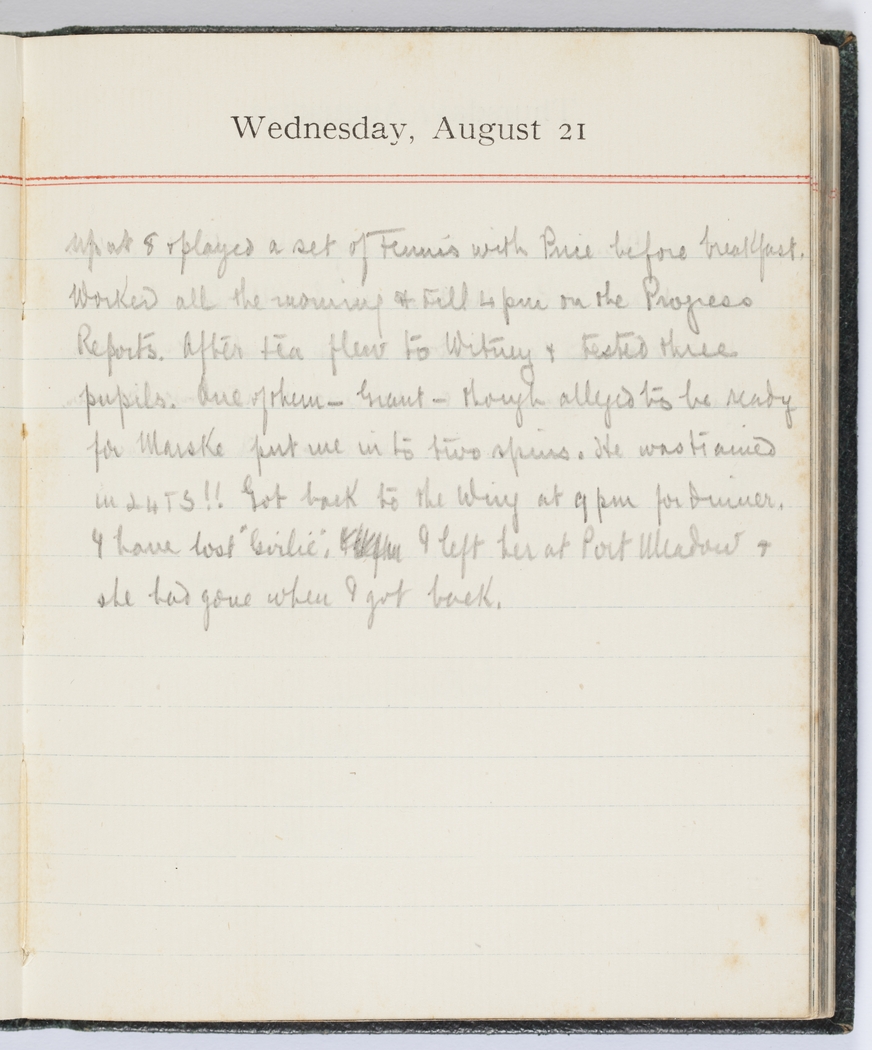 Wednesday, August 21
Up at 8 & played a set of Tennis with Price before breakfast.
Worked all the morning & till 4 pm on the Progress
Reports. After tea flew to Witney & tested three
pupils. One of them – Grant – though alleged to be ready
for Marske put me in to two spins. He was trained
in 24 TS!! Got back to the Wing at 9 pm for dinner.
I have lost "Girlie". I left her at Port Meadow &
she had gone when I got back.